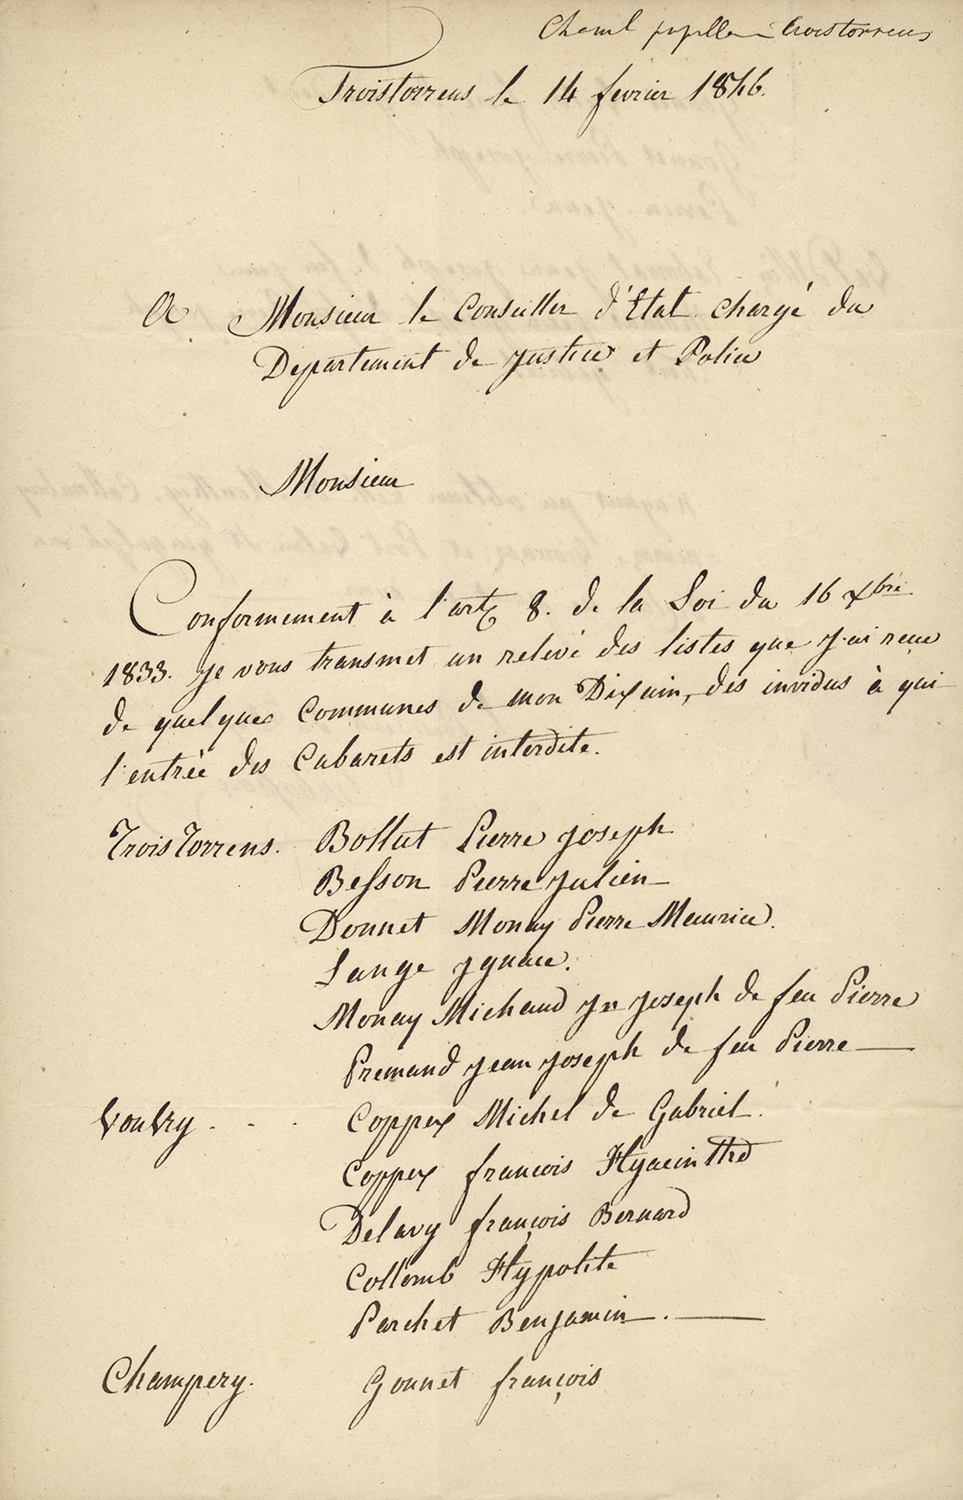 Troistorrens
Troistorrens le 14 fevrier 1846.
A Monsieur le Conseiller d'Etat chargé du
Departement de Justice et Police
Monsieur
Conformement à l'art 8. de la Loi du 16 Xbre
1833. je vous transmet un relevé des listes que j'ai reçue
de quelques Communes de mon Dixain, des invidus à qui
l'entrée des Cabarets est interdite.
TroisTorrens. Bollut Pierre Joseph
Besson Pierre Julien
Donnet Monay Pierre Maurice.
Lange Ygnace.
Monay Michaud Jn Joseph de feu Pierre
Premand Jean Joseph de feu Pierre
Vouvry . - . Coppex Michel de Gabriel.
Coppex francois Hyacinthe
Delavy françois Bernard
Collomb Hypolite
Parchet Benjamin.
Champery. Gonnet françois